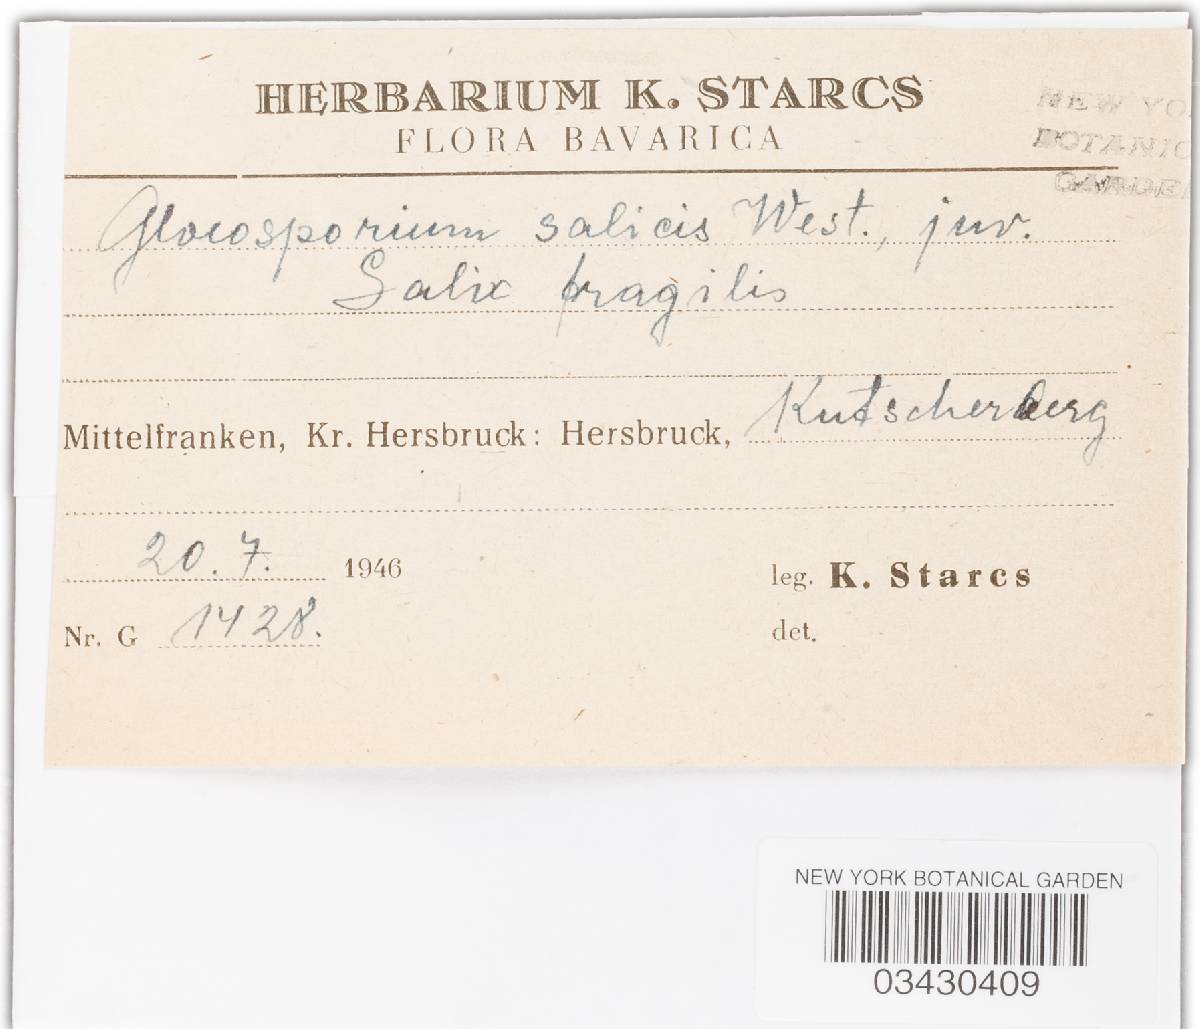 HERBARIUM K. STARCS
FLORA BAVARICA
NEW YO
BOTANIC
GARDE
Gloeosporium salicis West., juv.
Salix fragilis
Mittelfranken, Kr. Hersbruck: Hersbruck, Kutscherberg
20. 7. 1946
leg. K. Starcs
Nr. G 1428.
det.
NEW YORK BOTANICAL GARDEN
03430409